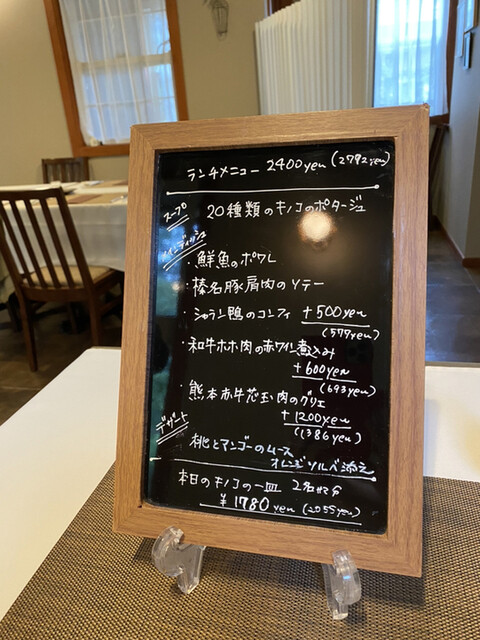 ランチメニュー 2400yen (2792yen)
スープ
20種類のキノコのポタージュ
メインディッシュ
・鮮魚のポワレ
・榛名豚肩肉のソテー
・シャラン鴨のコンフィ +500yen
(577yen)
・和牛ホホ肉の赤ワイン煮込み
+600yen
(693yen)
・熊本赤牛芯玉肉のグリエ
+1200yen
(1386yen)
デザート
桃とマンゴーのムース
オレンジソルベ添え
本日のキノコの一皿 2名サマ分
¥1780yen (2055yen)